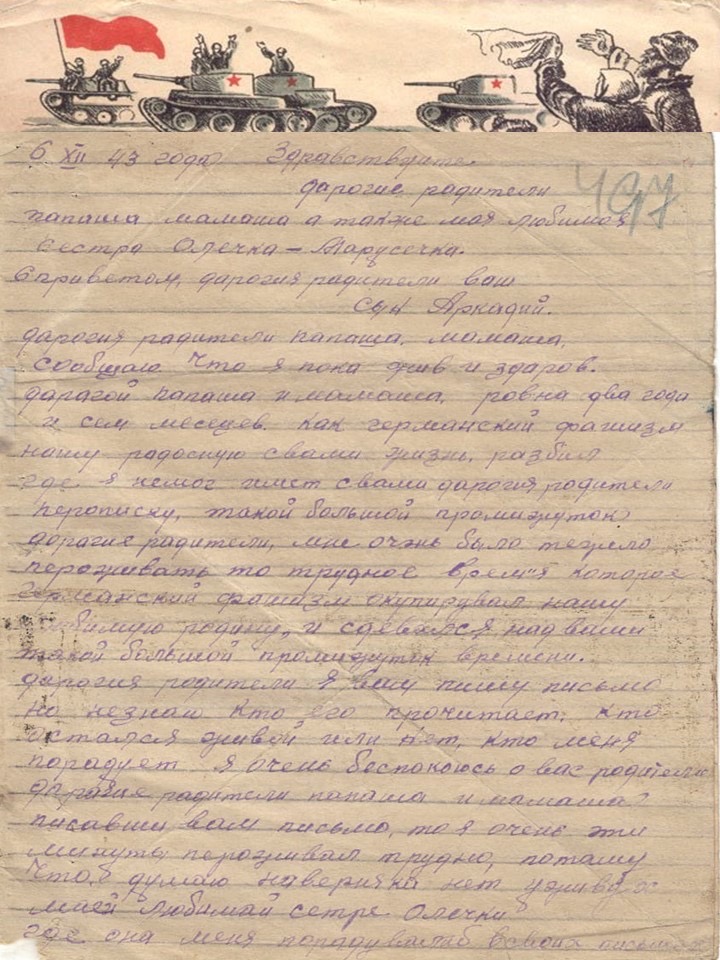 6 XII 43 года Здравствуйте
дарогие радители
497
папаша мамаша а также моя любимоя
сестра Олечка – Марусечка.
С приветом, дарогия радители ваш
сын Аркадий.
дарогия радители папаша, мамаша,
сообщаю что я пока жив и здаров.
дарагой папаша и мамаша, ровна два года
и сем месецев. как германский фашизм
нашу радосную свами жизнь, разбил
где я немог имет свами дарогия радители
перописку, такой большой промижуток
дорагие радители, мне очень было тежело
переживать то трудное время которое
германский фашизм окупировал нашу
любимую родину, и сдевался над вами
такой большой промижуток времени.
дарогия родители я вам пишу письмо
но незнаю кто его прочитает, кто
остался живой или нет, кто меня
порадует я очень беспокоюсь о вас родители
дарагие радители папаша и мамаша
писавши вам письмо, то я очень эти
минуты пероживал трудно, потаму
что думаю наверичка нет уживых
моей любимай сетре Олечки
где она меня в своих письмах